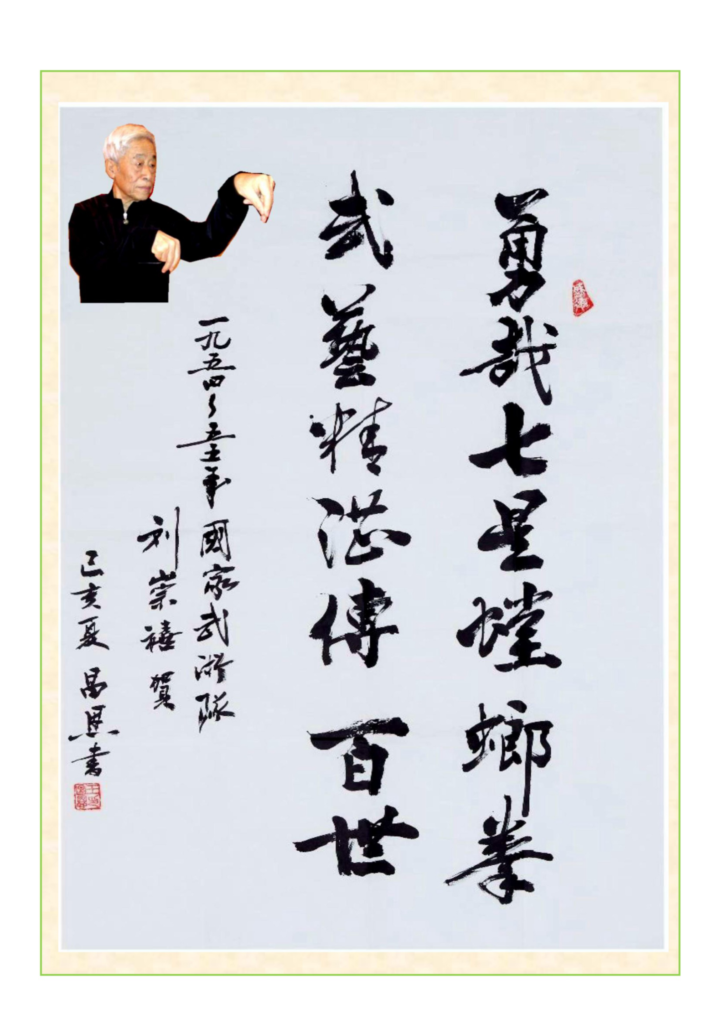 勇哉七星螳螂拳
武藝精湛傳百世
一九五四〜五五年國家武術隊
刘崇禧賀
己亥夏 昌恩書